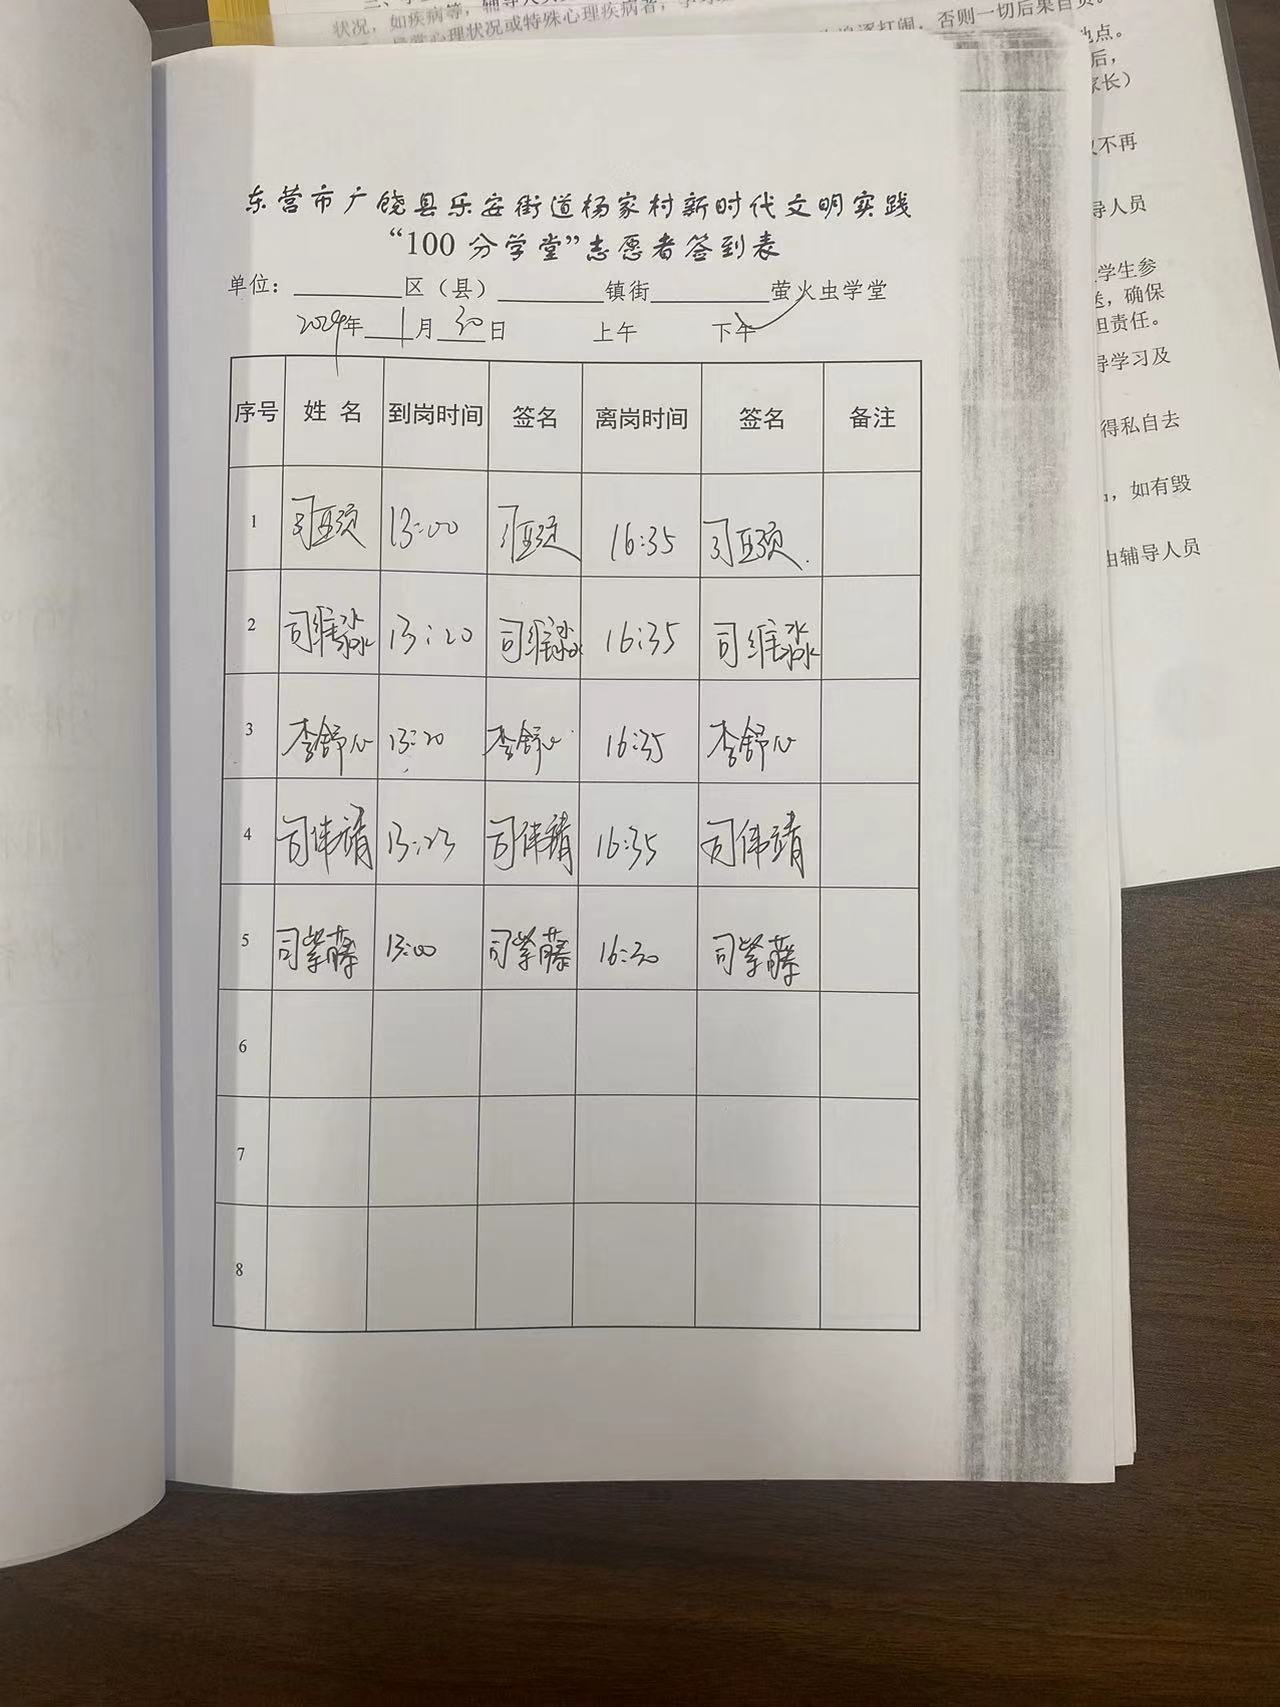 状况，如疾病等，辅导人员
异常心理状况或特殊心理疾病者，
追逐打闹，否则一切后果自负。
地点。
后，
家长）
不再
导人员
学生参
送，确保
担责任。
导学习及
得私自去
，如有毁
由辅导人员
东营市广饶县乐安街道杨家村新时代文明实践
“100分学堂”志愿者签到表
单位：________区（县）________镇街________萤火虫学堂
2024年 1月 30日 上午 下午✓
序号 姓 名 到岗时间 签名 离岗时间 签名 备注
1 司亚频 13:00 司亚频 16:35 司亚频
2 司维淼 13:20 司维淼 16:35 司维淼
3 李舒心 13:20 李舒心 16:35 李舒心
4 司伟靖 13:23 司伟靖 16:35 司伟靖
5 司紫藤 13:00 司紫藤 16:30 司紫藤
6
7
8